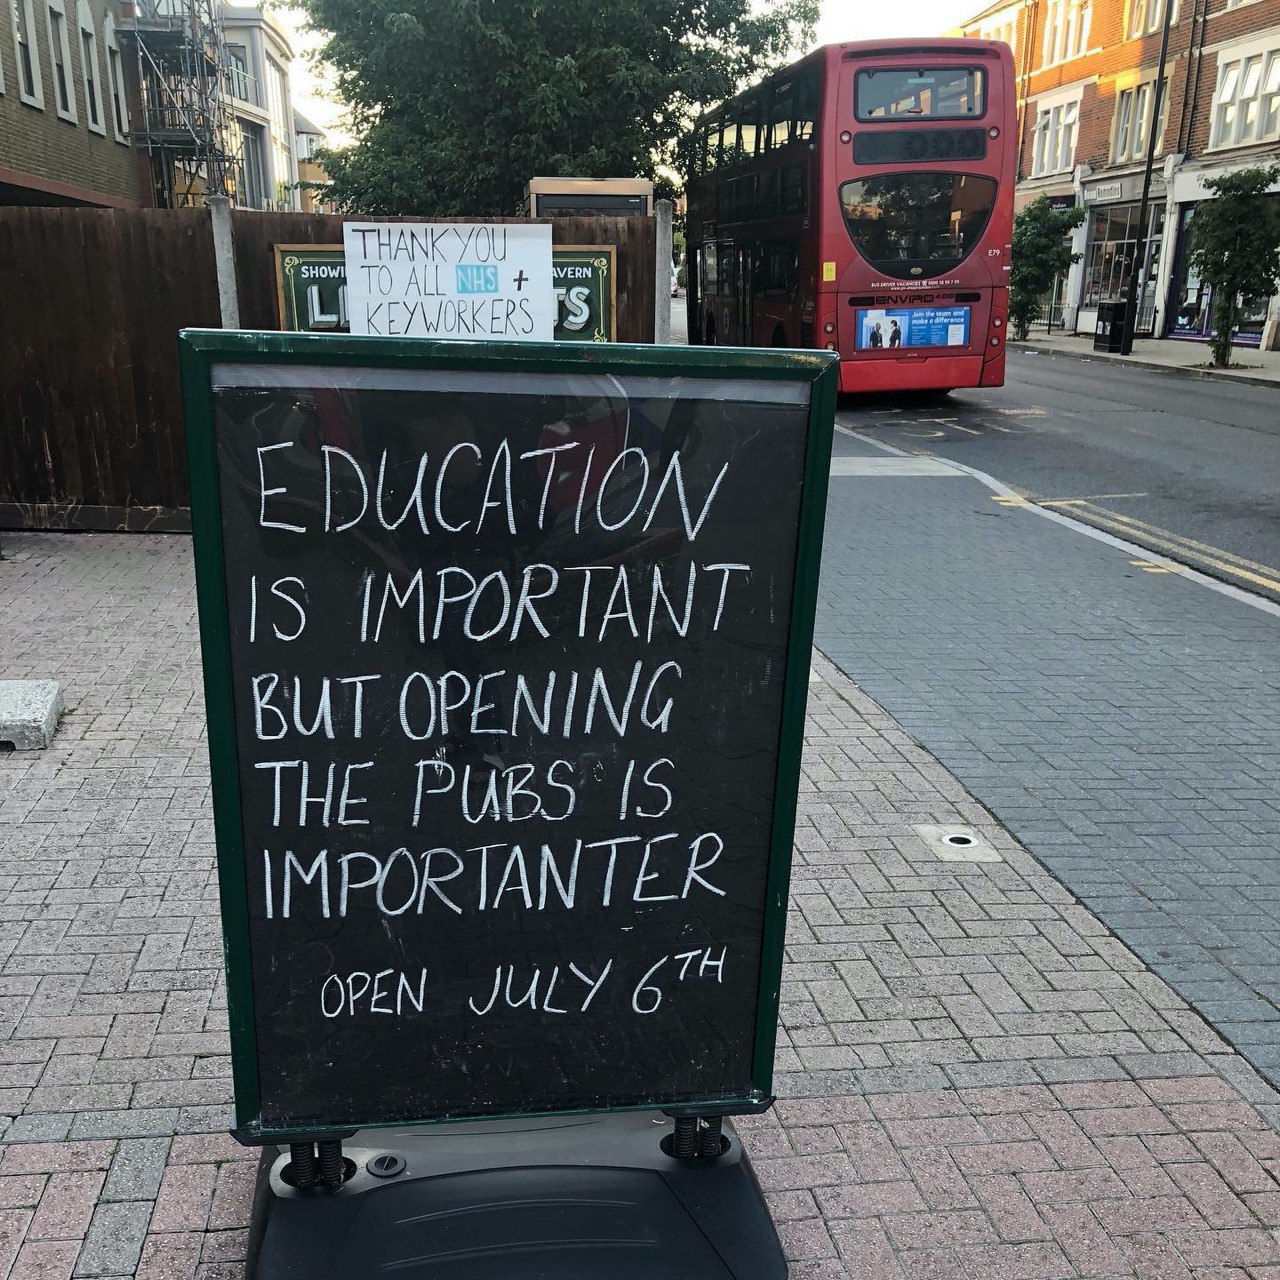 THANK YOU
TO ALL NHS +
KEYWORKERS
EDUCATION
IS IMPORTANT
BUT OPENING
THE PUBS IS
IMPORTANTER
OPEN JULY 6TH
E79
BUS DRIVER VACANCIES
ENVIRO400
Join the team and
make a difference